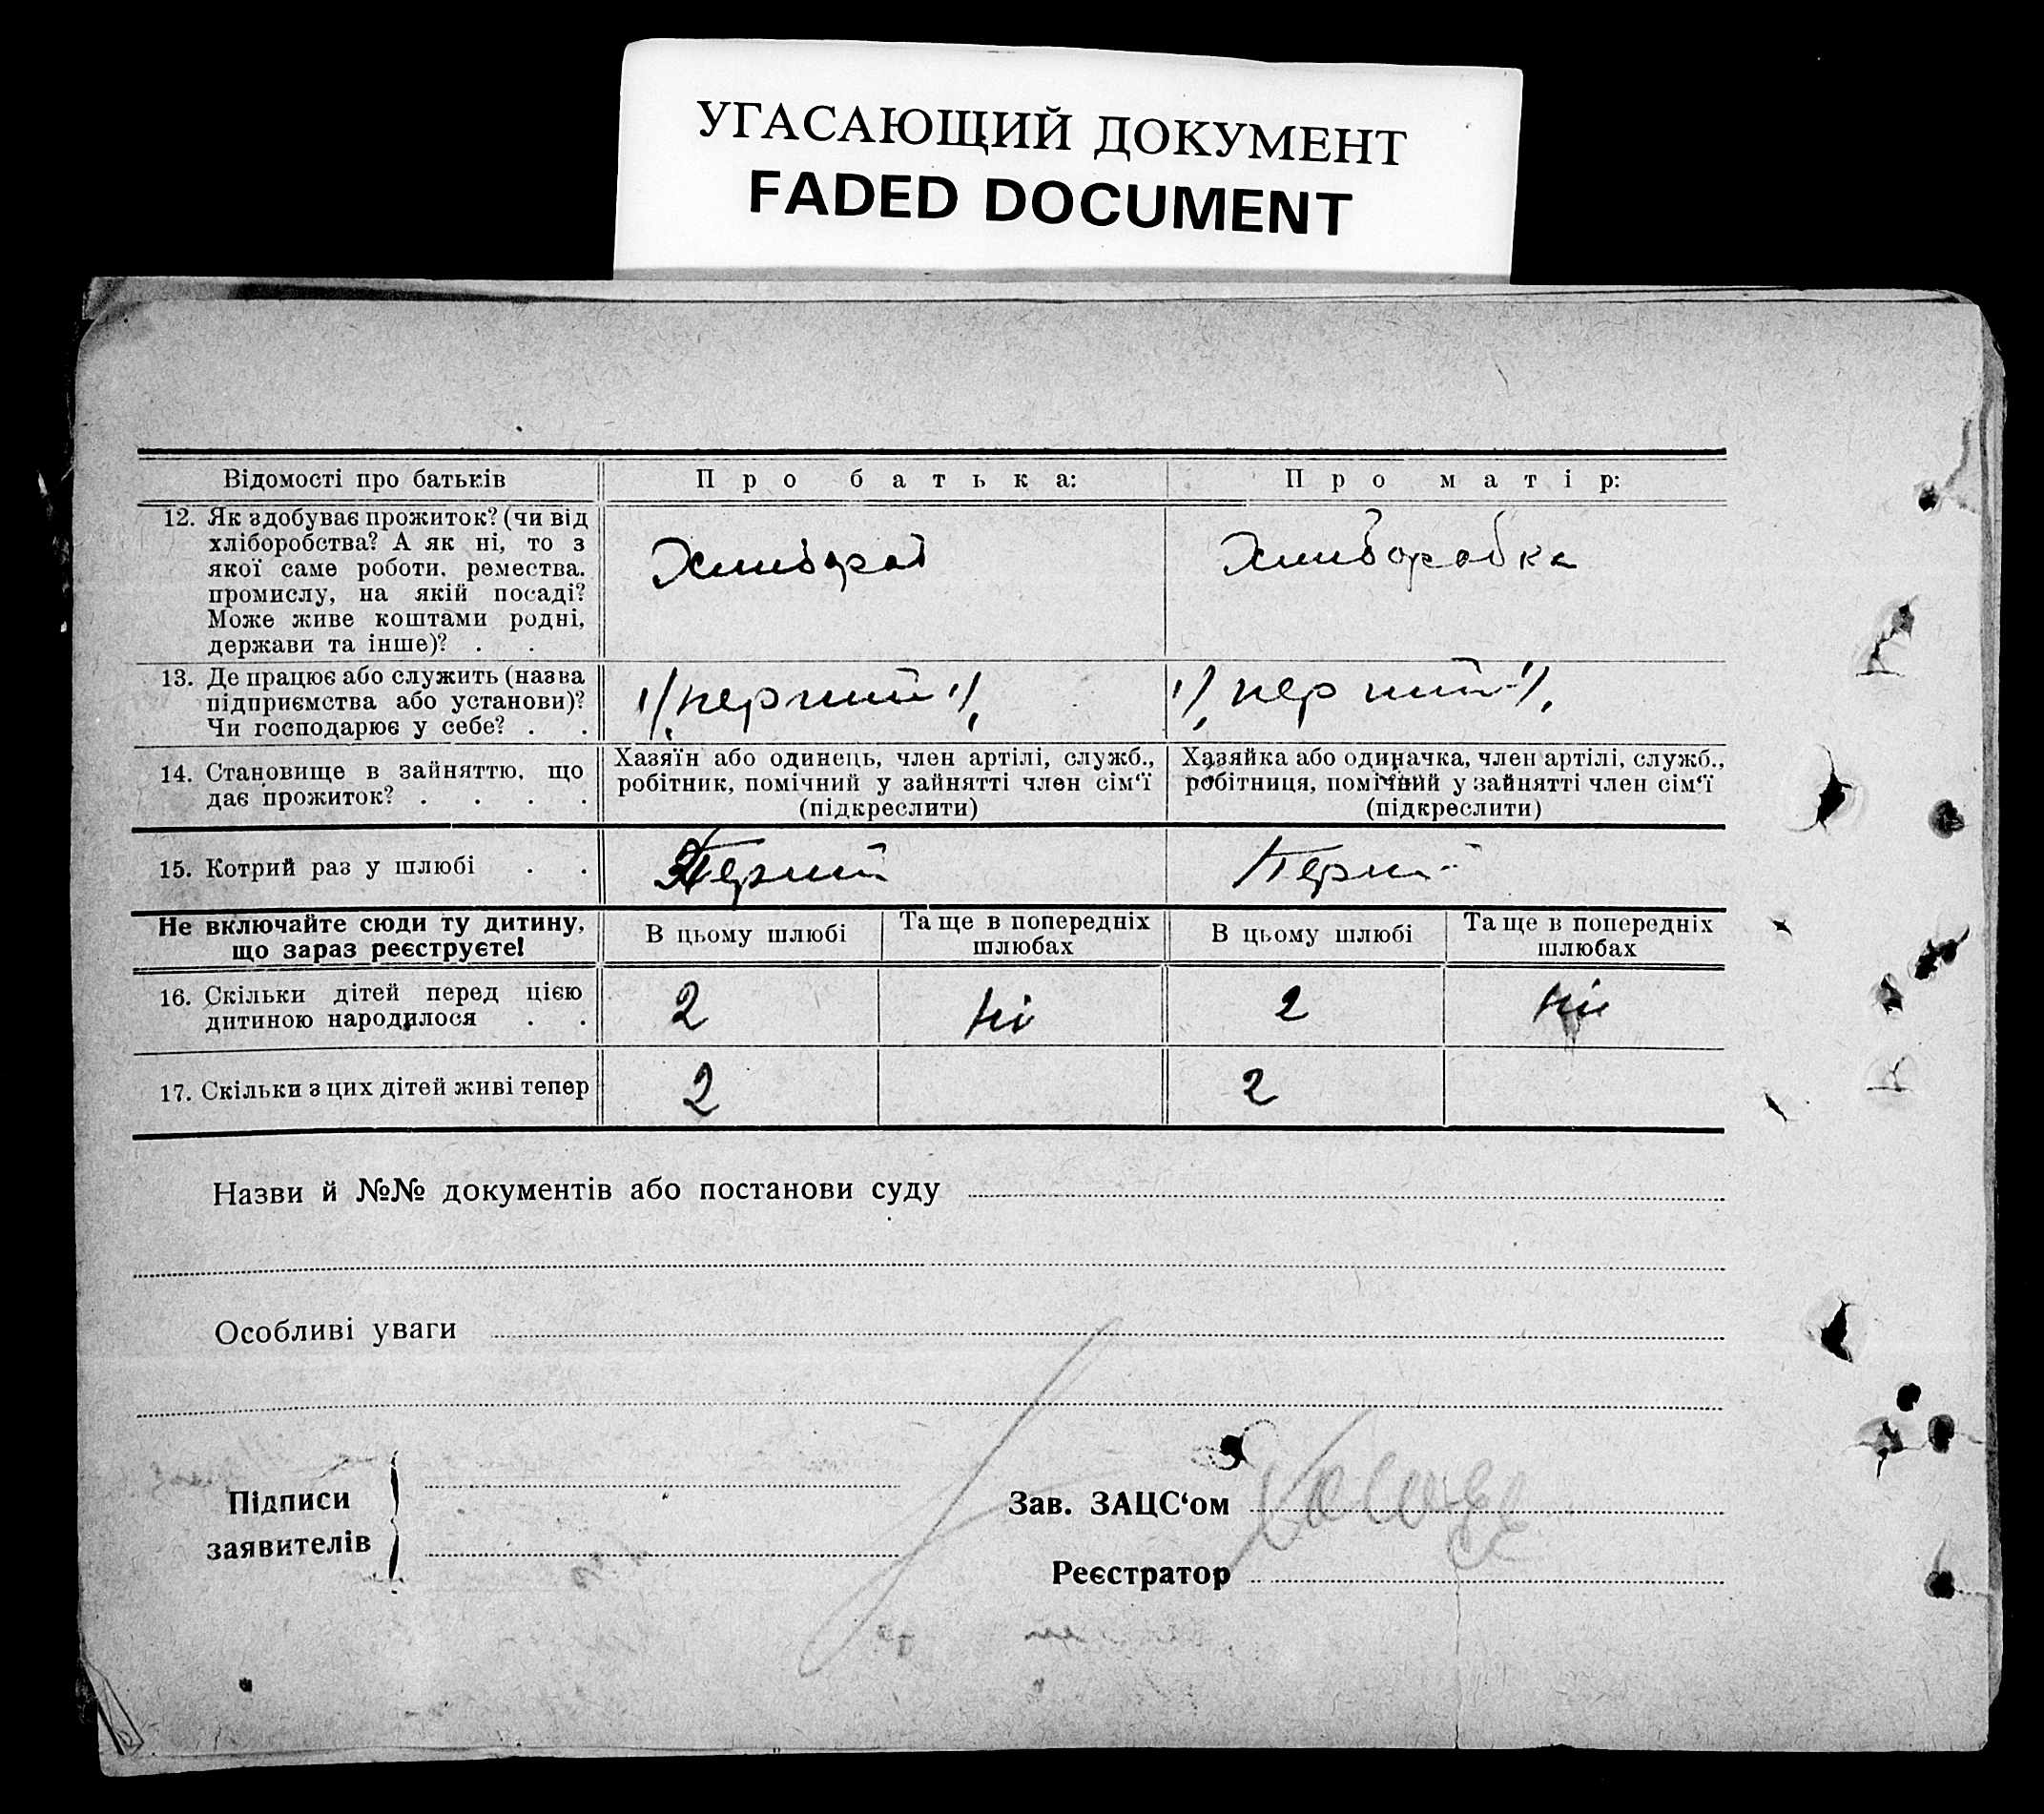 УГАСАЮЩИЙ ДОКУМЕНТ
FADED DOCUMENT
Відомості про батьків
Про батька:
Про матір:
12. Як здобуває прожиток? (чи від
хліборобства? А як ні, то з
якої саме роботи, ремества,
промислу, на якій посаді?
Може живе коштами родні,
держави та інше)? . .
Хлибораб
Хлиборобка
13. Де працює або служить (назва
підприємства або установи)?
Чи господарює у себе? . .
14. Становище в зайняттю, що
дає прожиток? . . . .
Хазяїн або одинець, член артілі, служб.,
робітник, помічний у зайнятті член сім‘ї
(підкреслити)
Хазяйка або одиначка, член артілі, служб.,
робітниця, помічний у зайнятті член сім‘ї
(підкреслити)
15. Котрий раз у шлюбі . .
Перший
Перш
Не включайте сюди ту дитину,
що зараз реєструєте!
В цьому шлюбі
Та ще в попередніх
шлюбах
В цьому шлюбі
Та ще в попередніх
шлюбах
16. Скільки дітей перед цією
дитиною народилося . .
2
ні
2
ні
17. Скільки з цих дітей живі тепер
2
2
Назви й №№ документів або постанови суду
Особливі уваги
Підписи
заявителів
Зав. ЗАЦС‘ом
Реєстратор